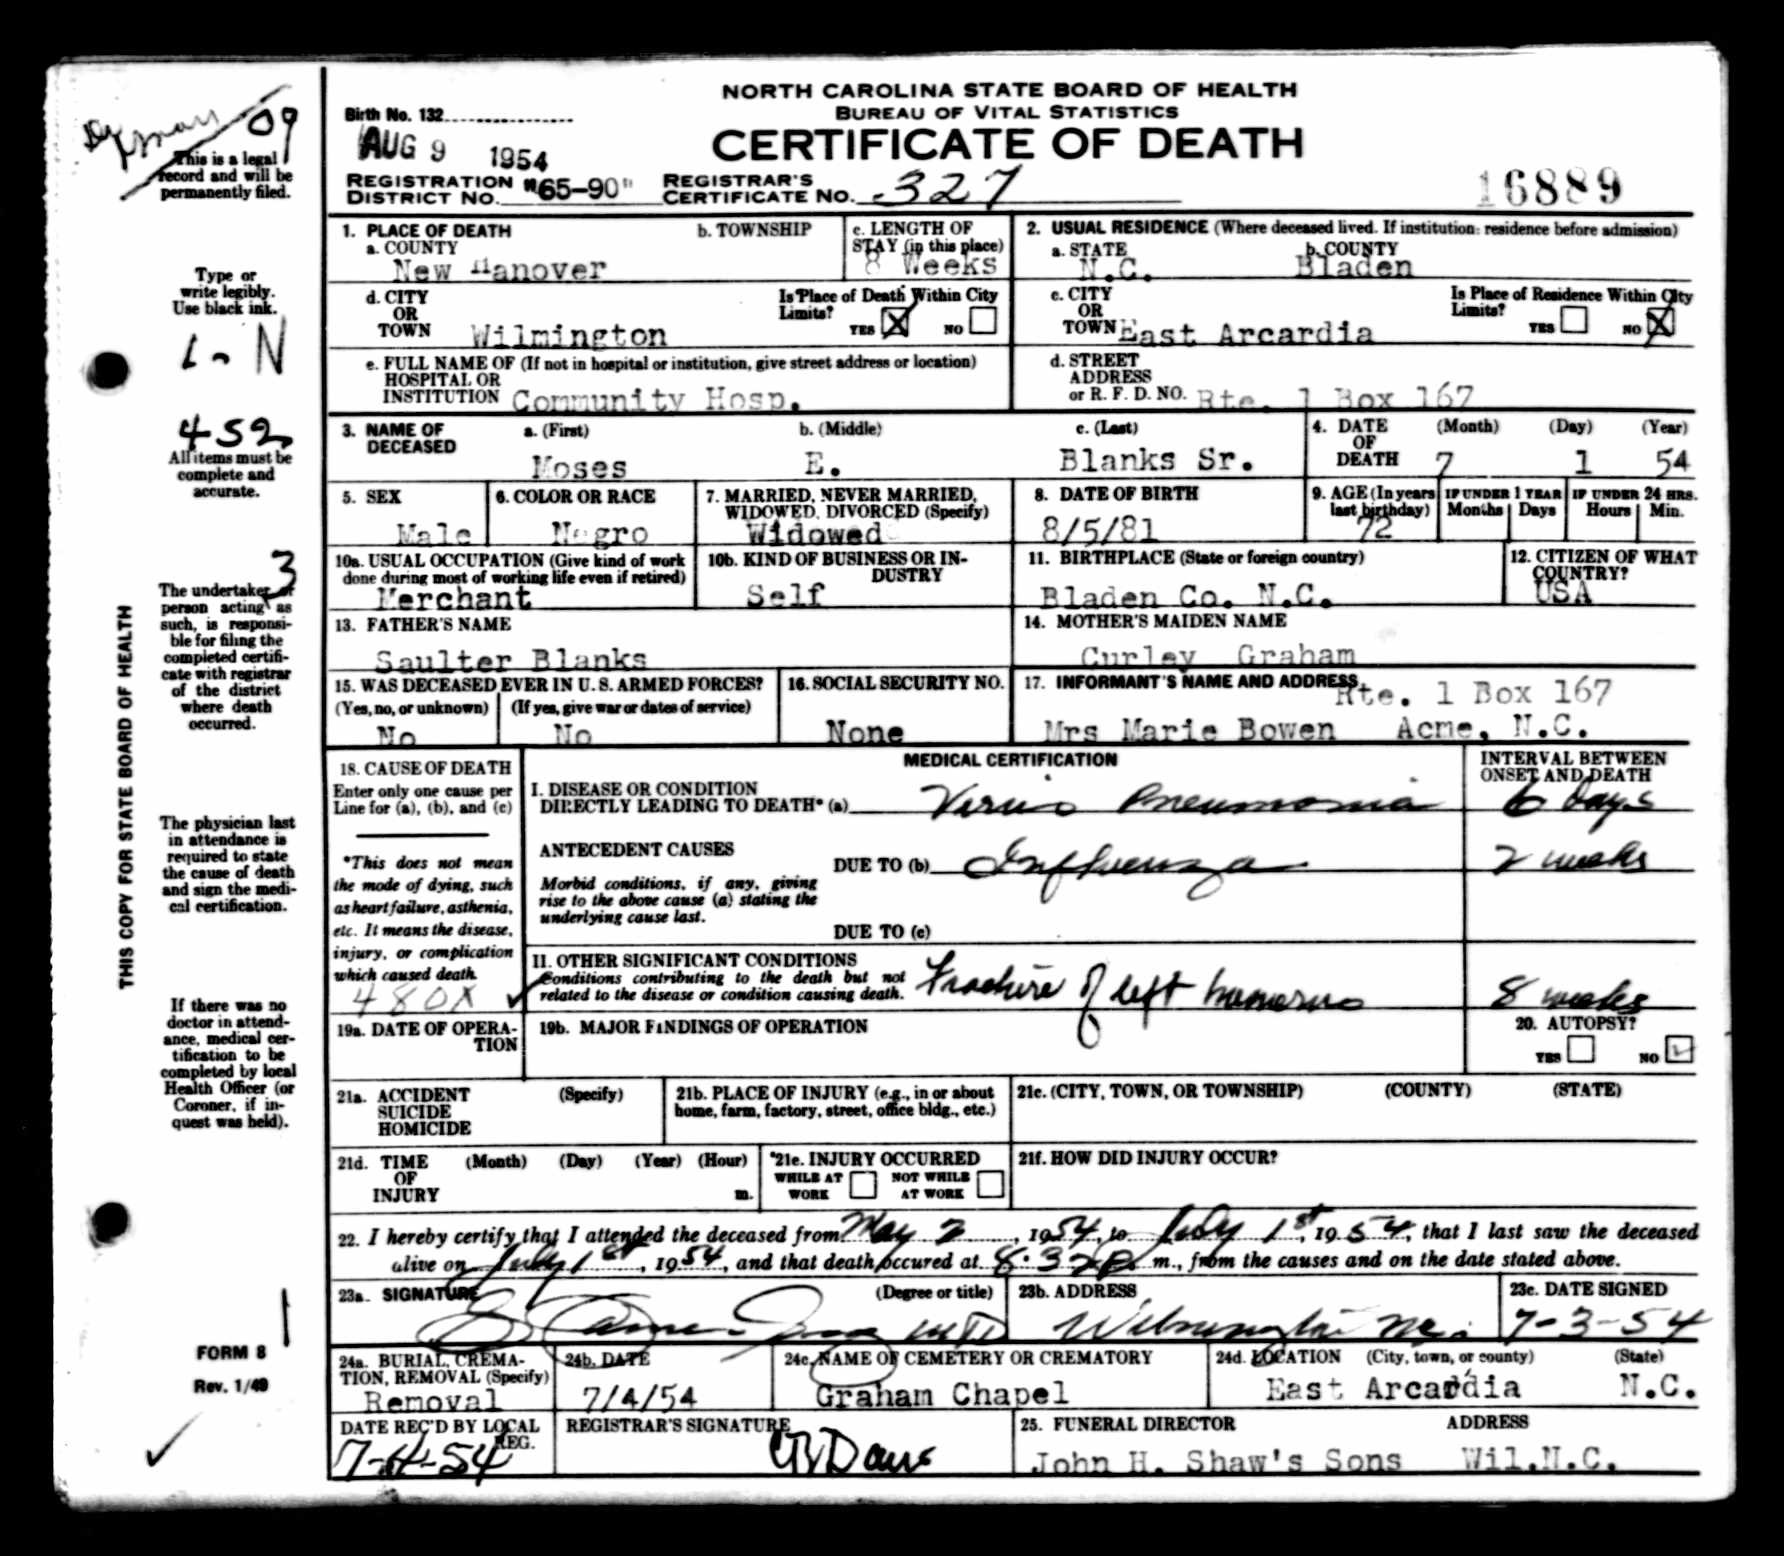 NORTH CAROLINA STATE BOARD OF HEALTH
BUREAU OF VITAL STATISTICS
CERTIFICATE OF DEATH
Birth No. 132
AUG 9 1954
REGISTRATION DISTRICT NO. "65-90" REGISTRAR'S CERTIFICATE NO. 327
16889
09
This is a legal
record and will be
permanently filed.
Type or
write legibly.
Use black ink.
L-N
452
All items must be
complete and
accurate.
3
The undertaker or
person acting as
such, is responsi-
ble for filing the
completed certifi-
cate with registrar
of the district
where death
occurred.
THIS COPY FOR STATE BOARD OF HEALTH
The physician last
in attendance is
required to state
the cause of death
and sign the medi-
cal certification.
If there was no
doctor in attend-
ance, medical cer-
tification to be
completed by local
Health Officer (or
Coroner, if in-
quest was held).
1
FORM 8
Rev. 1/49
1. PLACE OF DEATH
a. COUNTY
New Hanover
b. TOWNSHIP
c. LENGTH OF
STAY (in this place)
8 Weeks
2. USUAL RESIDENCE (Where deceased lived. If institution: residence before admission)
a. STATE
N.C.
b. COUNTY
Bladen
d. CITY
OR
TOWN Wilmington
Is Place of Death Within City
Limits?
YES X NO
c. CITY
OR
TOWN East Arcardia
Is Place of Residence Within City
Limits?
YES NO X
e. FULL NAME OF (If not in hospital or institution, give street address or location)
HOSPITAL OR
INSTITUTION Community Hosp.
d. STREET
ADDRESS
or R. F. D. NO. Rte. 1 Box 167
3. NAME OF
DECEASED
a. (First) b. (Middle) c. (Last)
Moses E. Blanks Sr.
4. DATE
OF
DEATH
(Month) (Day) (Year)
7 1 54
5. SEX
Male
6. COLOR OR RACE
Negro
7. MARRIED, NEVER MARRIED,
WIDOWED, DIVORCED (Specify)
Widowed
8. DATE OF BIRTH
8/5/81
9. AGE (In years
last birthday)
72
IF UNDER 1 YEAR
Months Days
IF UNDER 24 HRS.
Hours Min.
10a. USUAL OCCUPATION (Give kind of work
done during most of working life even if retired)
Merchant
10b. KIND OF BUSINESS OR IN-
DUSTRY
Self
11. BIRTHPLACE (State or foreign country)
Bladen Co. N.C.
12. CITIZEN OF WHAT
COUNTRY?
USA
13. FATHER'S NAME
Saulter Blanks
14. MOTHER'S MAIDEN NAME
Curley Graham
15. WAS DECEASED EVER IN U. S. ARMED FORCES?
(Yes, no, or unknown) (If yes, give war or dates of service)
No No
16. SOCIAL SECURITY NO.
None
17. INFORMANT'S NAME AND ADDRESS
Rte. 1 Box 167
Mrs Marie Bowen Acme, N.C.
18. CAUSE OF DEATH
Enter only one cause per
Line for (a), (b), and (c)
*This does not mean
the mode of dying, such
as heart failure, asthenia,
etc. It means the disease,
injury, or complication
which caused death.
480X
MEDICAL CERTIFICATION
INTERVAL BETWEEN
ONSET AND DEATH
I. DISEASE OR CONDITION
DIRECTLY LEADING TO DEATH* (a) Virus Pneumonia 6 days
ANTECEDENT CAUSES
DUE TO (b) Influenza 2 weeks
Morbid conditions, if any, giving
rise to the above cause (a) stating the
underlying cause last.
DUE TO (c)
II. OTHER SIGNIFICANT CONDITIONS
Conditions contributing to the death but not
related to the disease or condition causing death.
Fracture of left humerus 8 weeks
19a. DATE OF OPERA-
TION
19b. MAJOR FINDINGS OF OPERATION
20. AUTOPSY?
YES NO ✓
21a. ACCIDENT
SUICIDE
HOMICIDE
(Specify)
21b. PLACE OF INJURY (e.g., in or about
home, farm, factory, street, office bldg., etc.)
21c. (CITY, TOWN, OR TOWNSHIP) (COUNTY) (STATE)
21d. TIME
OF
INJURY
(Month) (Day) (Year) (Hour)
m.
21e. INJURY OCCURRED
WHILE AT
WORK
NOT WHILE
AT WORK
21f. HOW DID INJURY OCCUR?
22. I hereby certify that I attended the deceased from May 2, 1954, to July 1st, 1954, that I last saw the deceased
alive on July 1st, 1954, and that death occured at 8:32 P. m., from the causes and on the date stated above.
23a. SIGNATURE (Degree or title)
MD
23b. ADDRESS
Wilmington N.C.
23c. DATE SIGNED
7-3-54
24a. BURIAL, CREMA-
TION, REMOVAL (Specify)
Removal
24b. DATE
7/4/54
24c. NAME OF CEMETERY OR CREMATORY
Graham Chapel
24d. LOCATION (City, town, or county) (State)
East Arcardia N.C.
DATE REC'D BY LOCAL
REG.
7-4-54
REGISTRAR'S SIGNATURE
25. FUNERAL DIRECTOR ADDRESS
John H. Shaw's Sons Wil.N.C.